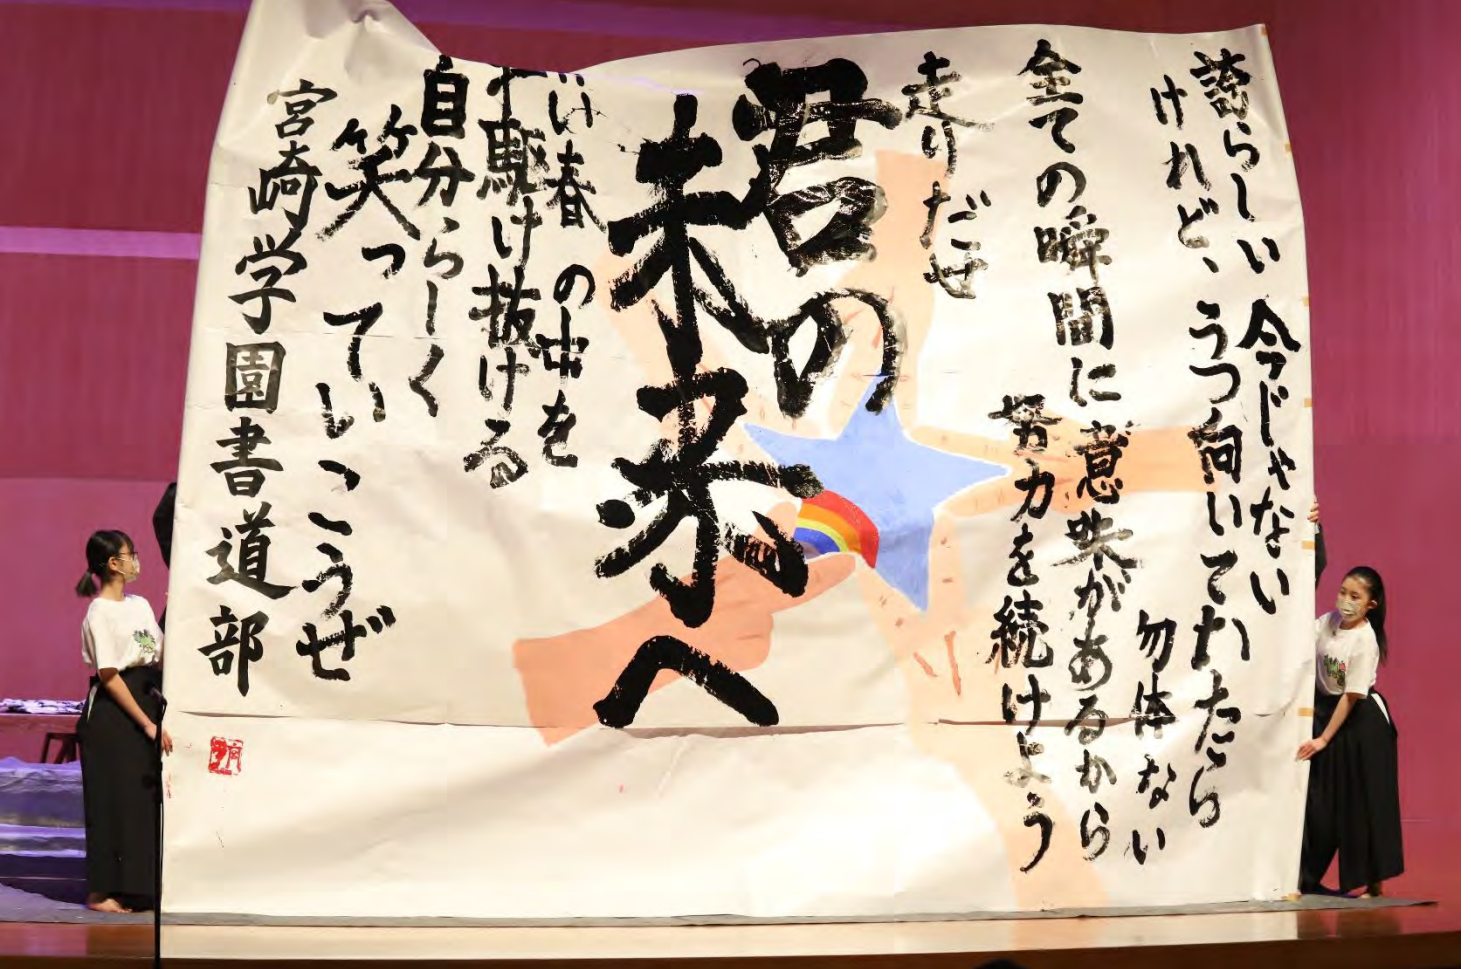 誇らしい今じゃない
けれど、うつ向いて たら
勿体ない
全ての瞬間に意味があるから
努力を続けよう
走りだせ
君の
未来へ
い春の中を
駆け抜ける
自分らしく
笑っていこうぜ
宮崎学園書道部